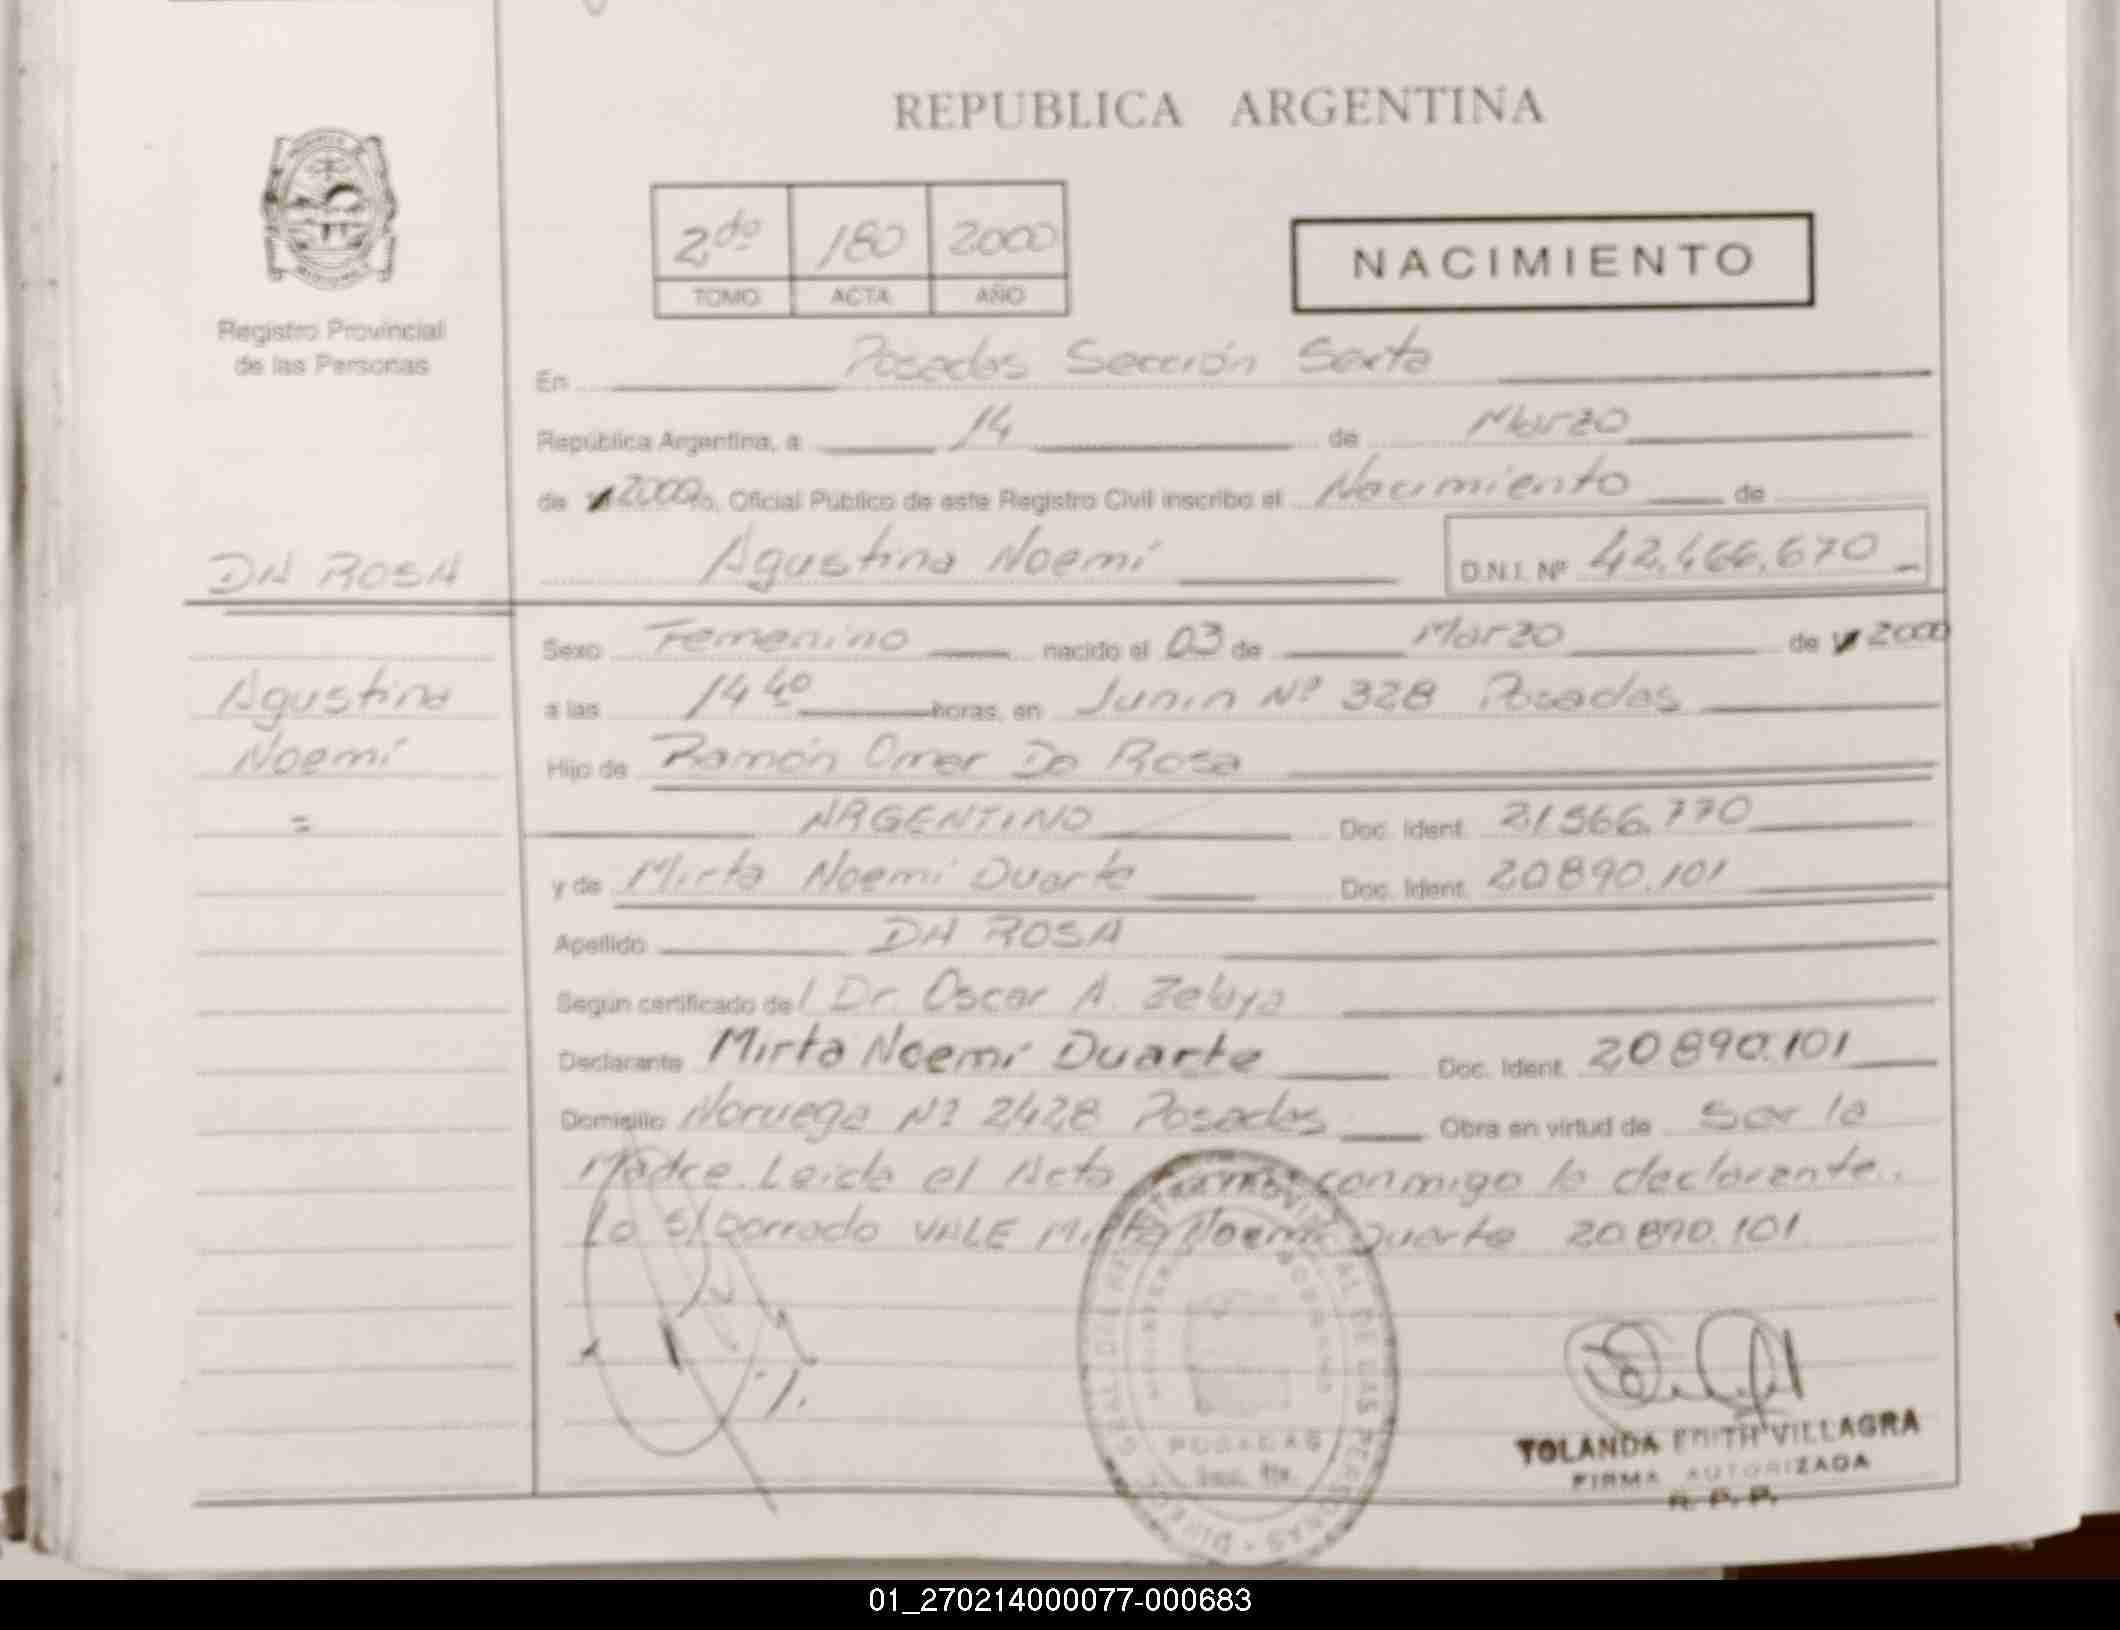 REPUBLICA ARGENTINA
2do 180 2000
TOMO ACTA AÑO
NACIMIENTO
Registro Provincial
de las Personas
En Posadas Sección Sexta
República Argentina, a 14 de Marzo
de 2000 Oficial Público de este Registro Civil inscribo el Nacimiento de
DA ROSA
Agustina Noemí D.N.I. Nº 42.466.670
Sexo Femenino nacido el 03 de Marzo de 2000
Agustina
Noemí
=
a las 14 40 horas, en Junin Nº 328 Posadas
Hijo de Ramón Omar Da Rosa
ARGENTINO Doc. Ident. 21.566.770
y de Mirta Noemí Duarte Doc. Ident. 20890.101
Apellido DA ROSA
Según certificado del Dr. Oscar A. Zelaya
Declarante Mirta Noemí Duarte Doc. Ident. 20890.101
Domicilio Noruega Nº 2428 Posadas Obra en virtud de ser la
Madre. Leida el Acta conmigo la declarante.
Lo s/borrado VALE Mirta Noemí Duarte 20.890.101
POSADAS
YOLANDA EDITH VILLAGRA
FIRMA AUTORIZADA
R. P. P.
01_270214000077-000683